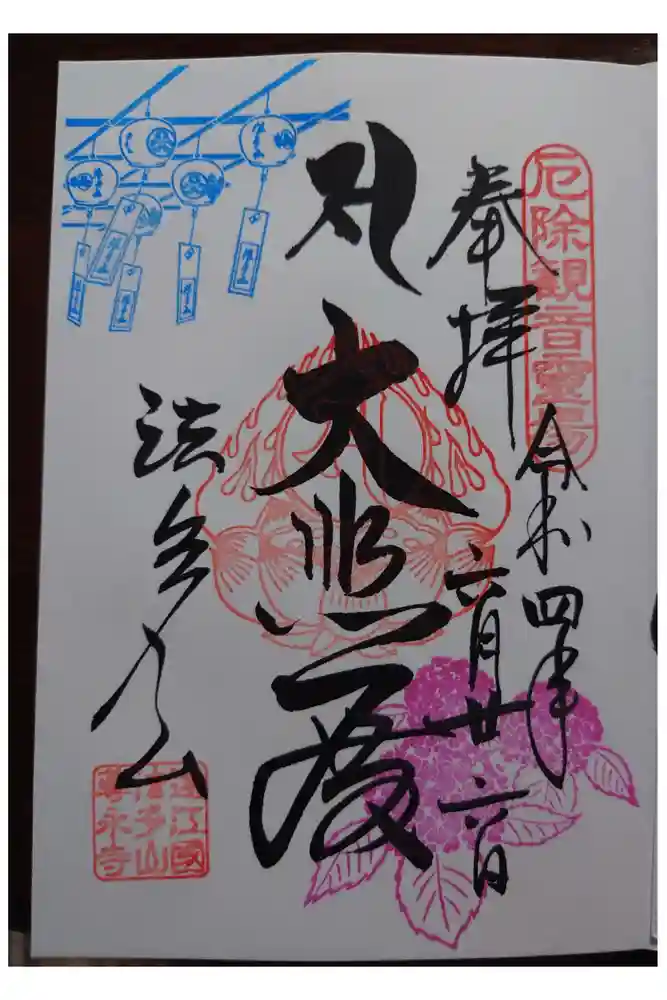 厄除観音靈場
奉拝
令和四年
六月廿六日
大悲殿
法多山
遠江國
法多山
尊永寺